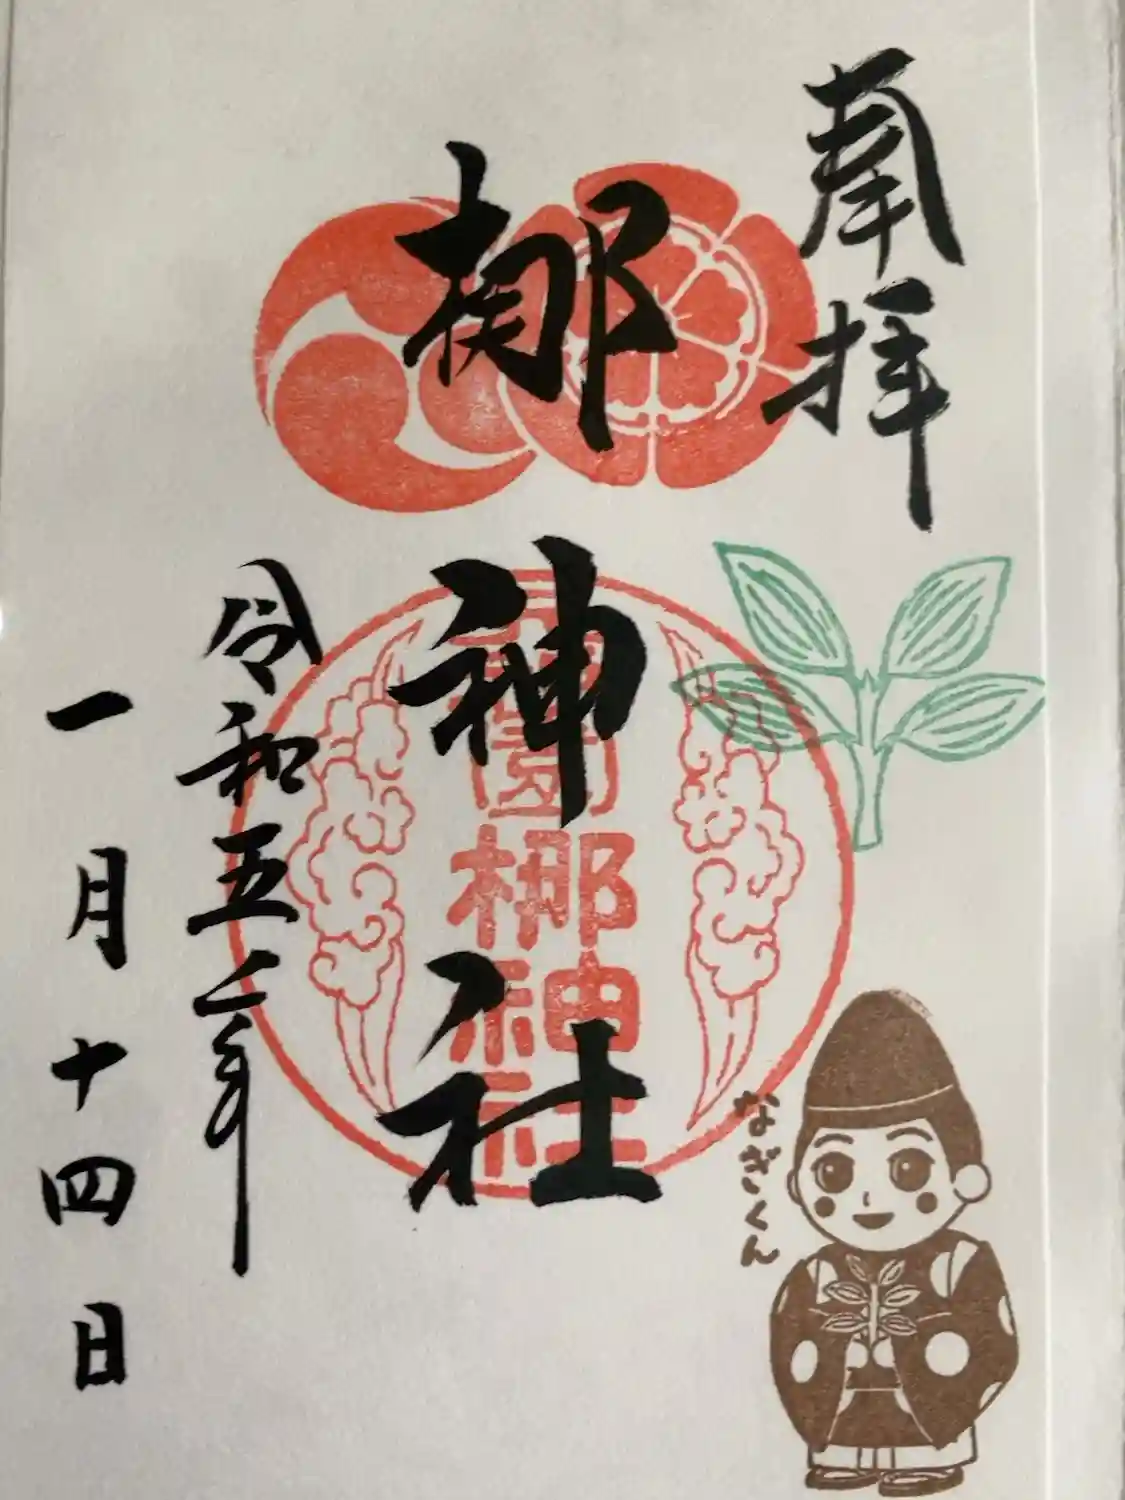 奉拝
梛神社
園梛神社
令和五年
一月十四日
なぎくん